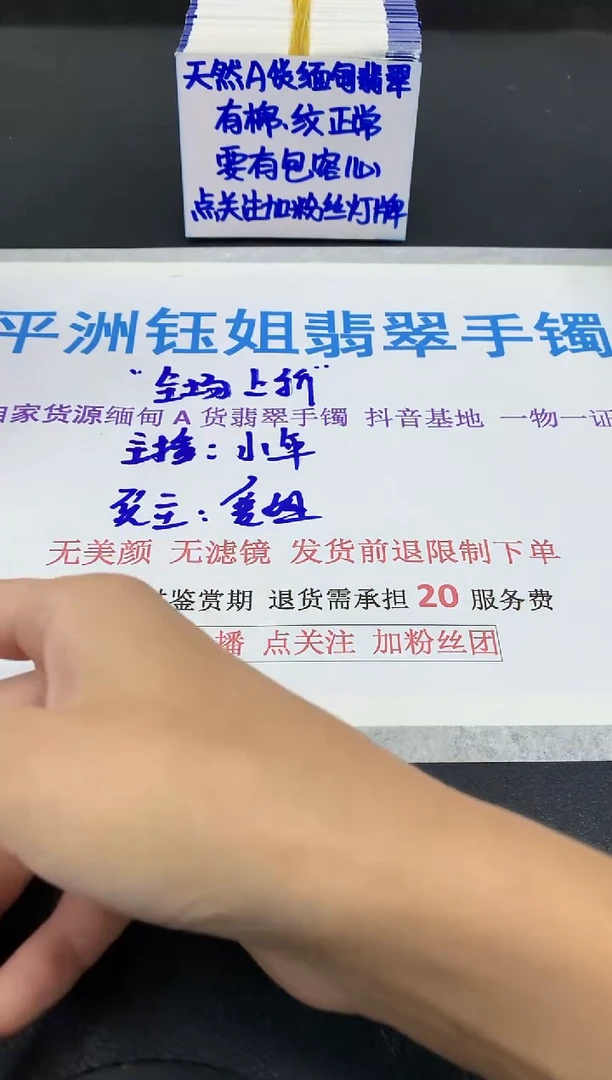 天然A货缅甸翡翠
有棉、纹正常
要有包容心
点关注加粉丝灯牌
平洲钰姐翡翠手镯
"全场上折"
自家货源缅甸 A 货翡翠手镯 抖音基地 一物一证
主播：小年
买主：
无美颜 无滤镜 发货前退限制下单
鉴赏期 退货需承担 20 服务费
播 点关注 加粉丝团